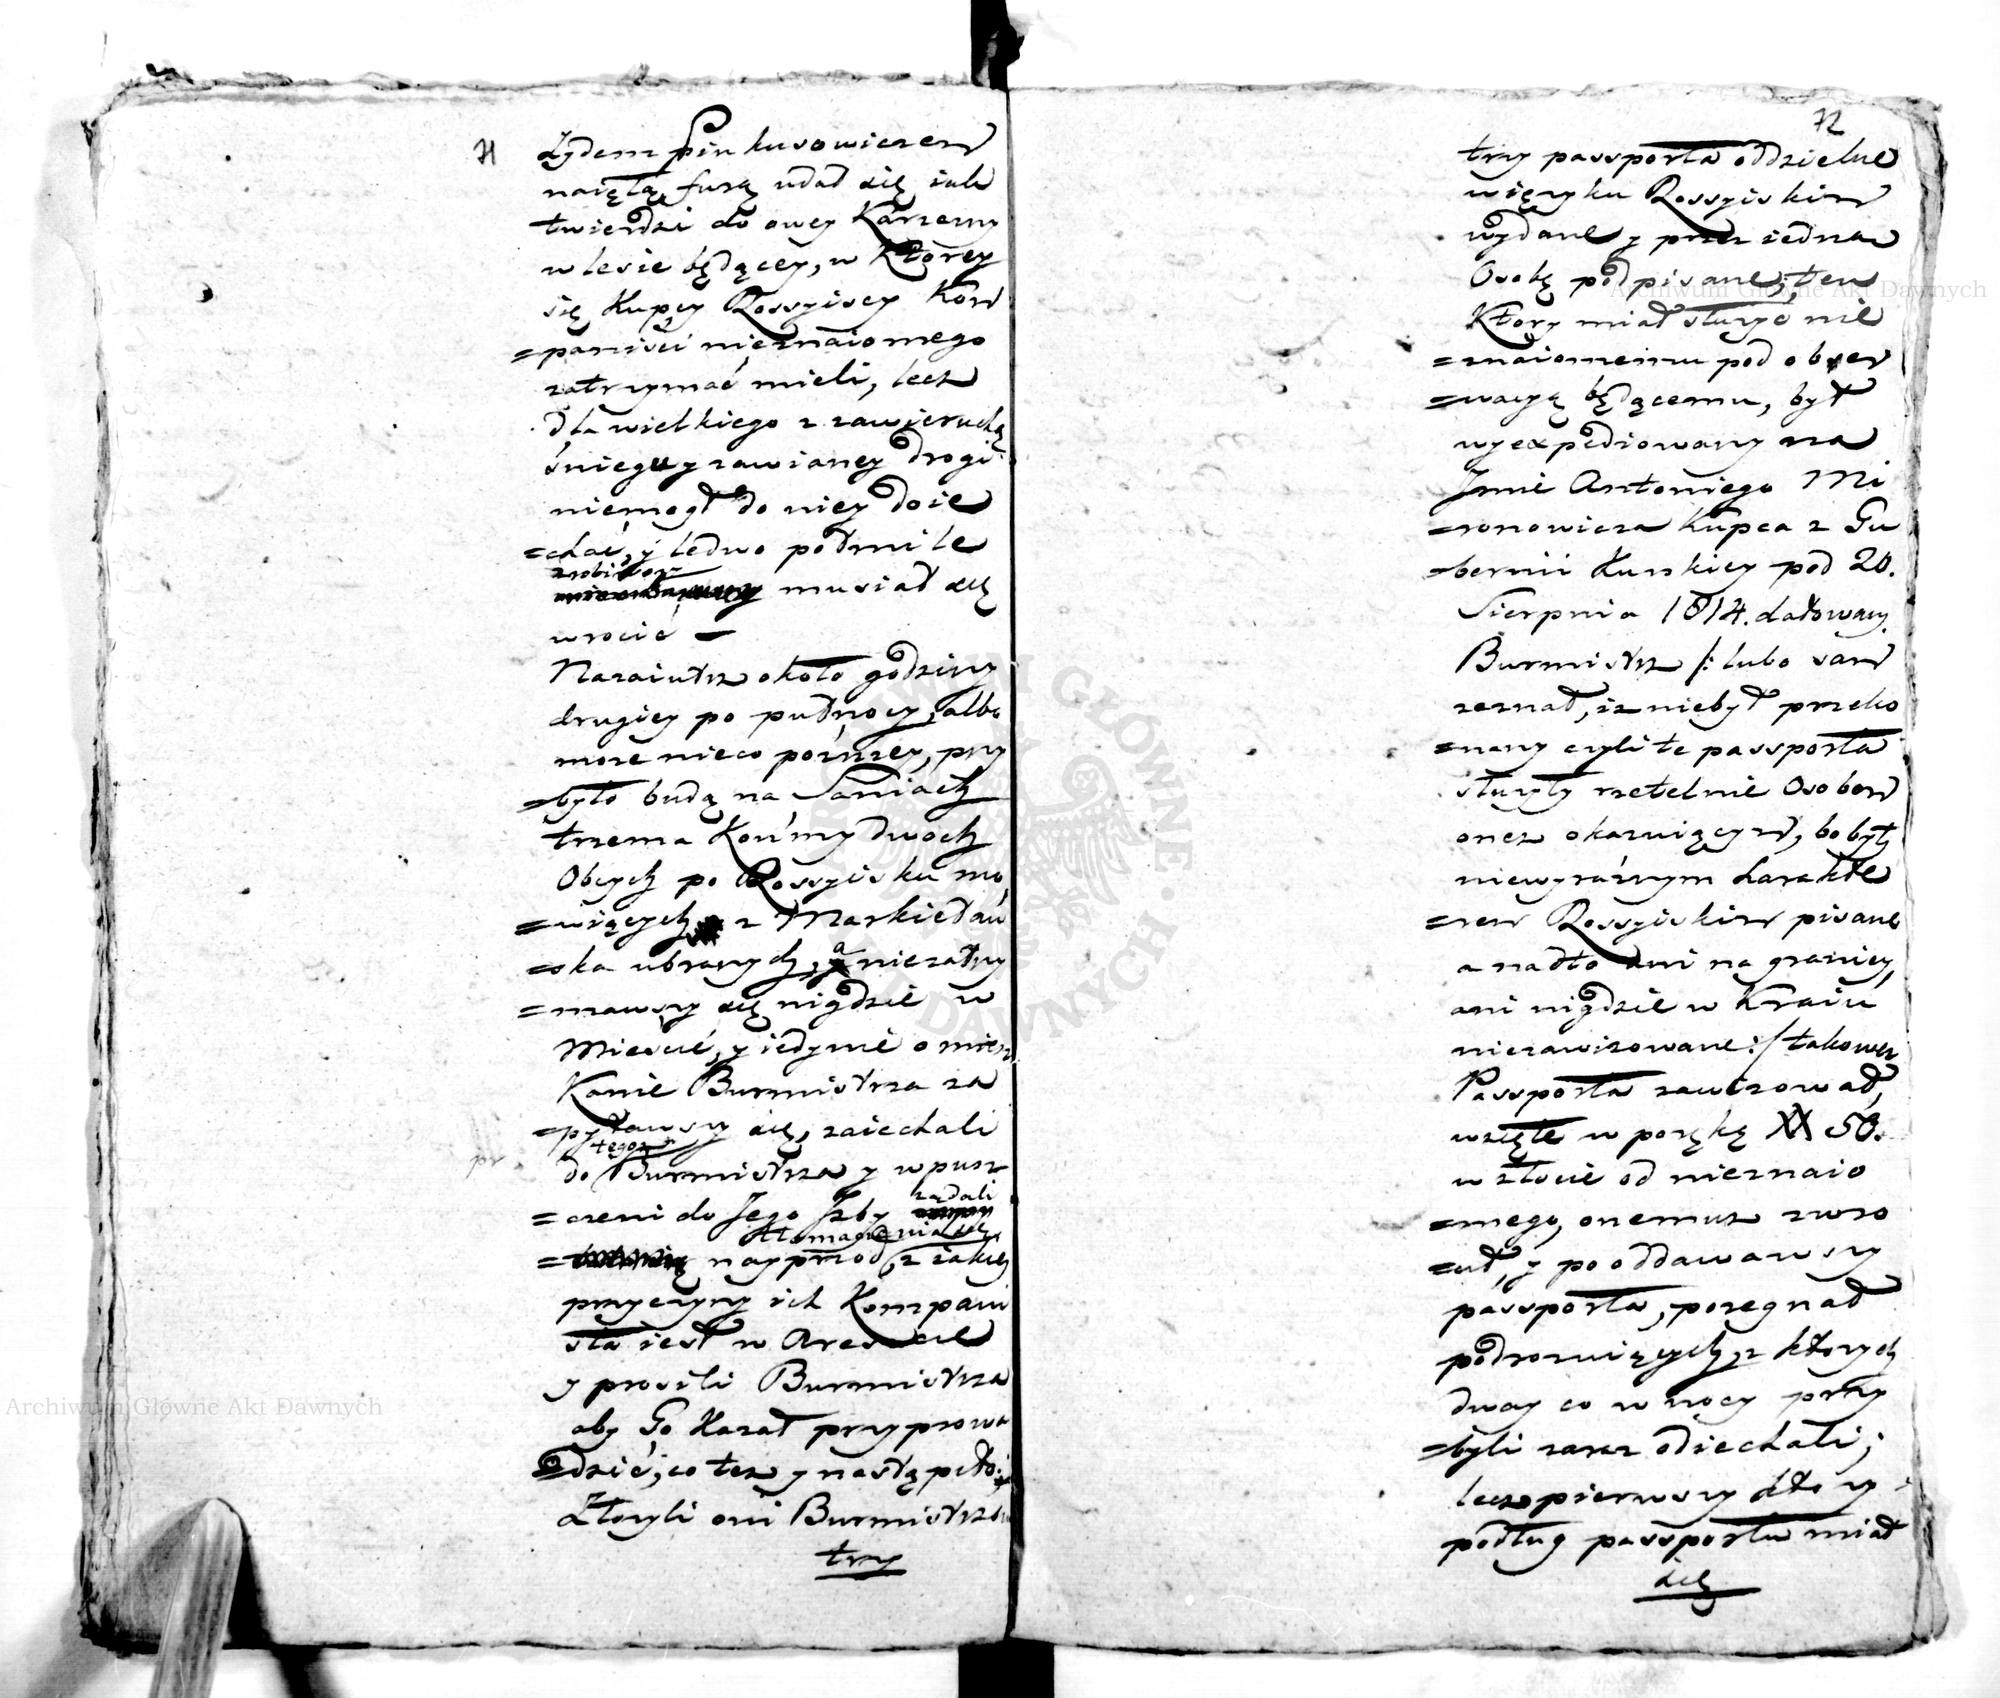 71
Żydem Pinkusowiczem
naiętą furą udał się iak
twierdzi do owey Karczmy
w lesie będącey, w Którey
się Kupcy Rossyiscy Kom
=paniści nieznaiomego
zatrzymać mieli, lecz
dla wielkiego z zawieruchą
śniegu y zawianey drogi
niemogł do niey doie
=chać, y ledwo półmile
zrobiwszy
musiał się
wrocić —
Nazaiutrz około godziny
drugiey po pułnocy, albo
może nieco poźniey, przy
=było budą na Saniach
trzema Końmy dwoch
Obcych po Rossyisku mo
=wiących z Markietań
=ska ubranych, a niezatrzy
=mawszy się nigdzie w
Mieście, y iedynie o miesz
Kanie Burmistrza za
=pytawszy się, zaiechali
tegoż
do Burmistrza y wpusz
żądali
=czeni do Jego Jzby
tłomaczenia się,
nayprzod, z iakiey
przyczyny ich Kompani
sta iest w Areszcie
y prosili Burmistrza
aby Go Kazał przyprowa
=dzić, co też y nastąpiło.
Złożyli oni Burmistrzow
trzy
72
trzy passporta oddzielne
w ięzyku Rossyiskim
wydane y przez iedna
Osobę podpisane; ten
Ktory miał służyć nie
=znaiomemu pod obser
=wacyą będącemu, był
wyexpediowany na
Jmie Antoniego Mi
=ronowicza Kupca z Gu
=bernii Kurskiey pod 20.
Sierpnia 1814. datowany.
Burmistrz /: lubo sam
zeznał, iż niebył przeko
=nany czyli te passporta
służyły rzetelnie Osobom
onez okazuiącym, bo były
niewyraźnym harakte
=rem Rossyiskim pisane
a nadto ani na granicy
ani nigdzie w Kraiu
niezawizowane :/ takowez
Passporta zawizował,
wzięte w porękę XX 50.
w złocie od nieznaio
=mego, onemuz zwro
=cił, y pooddawawszy
passporta, pożegnał
podrozuiących, z ktorych
dway co w nocy przy
=byli zaraz odiechali;
lecz pierwszy ktory
podług passportu miał
się
Archiwum Główne Akt Dawnych
Archiwum Główne Akt Dawnych